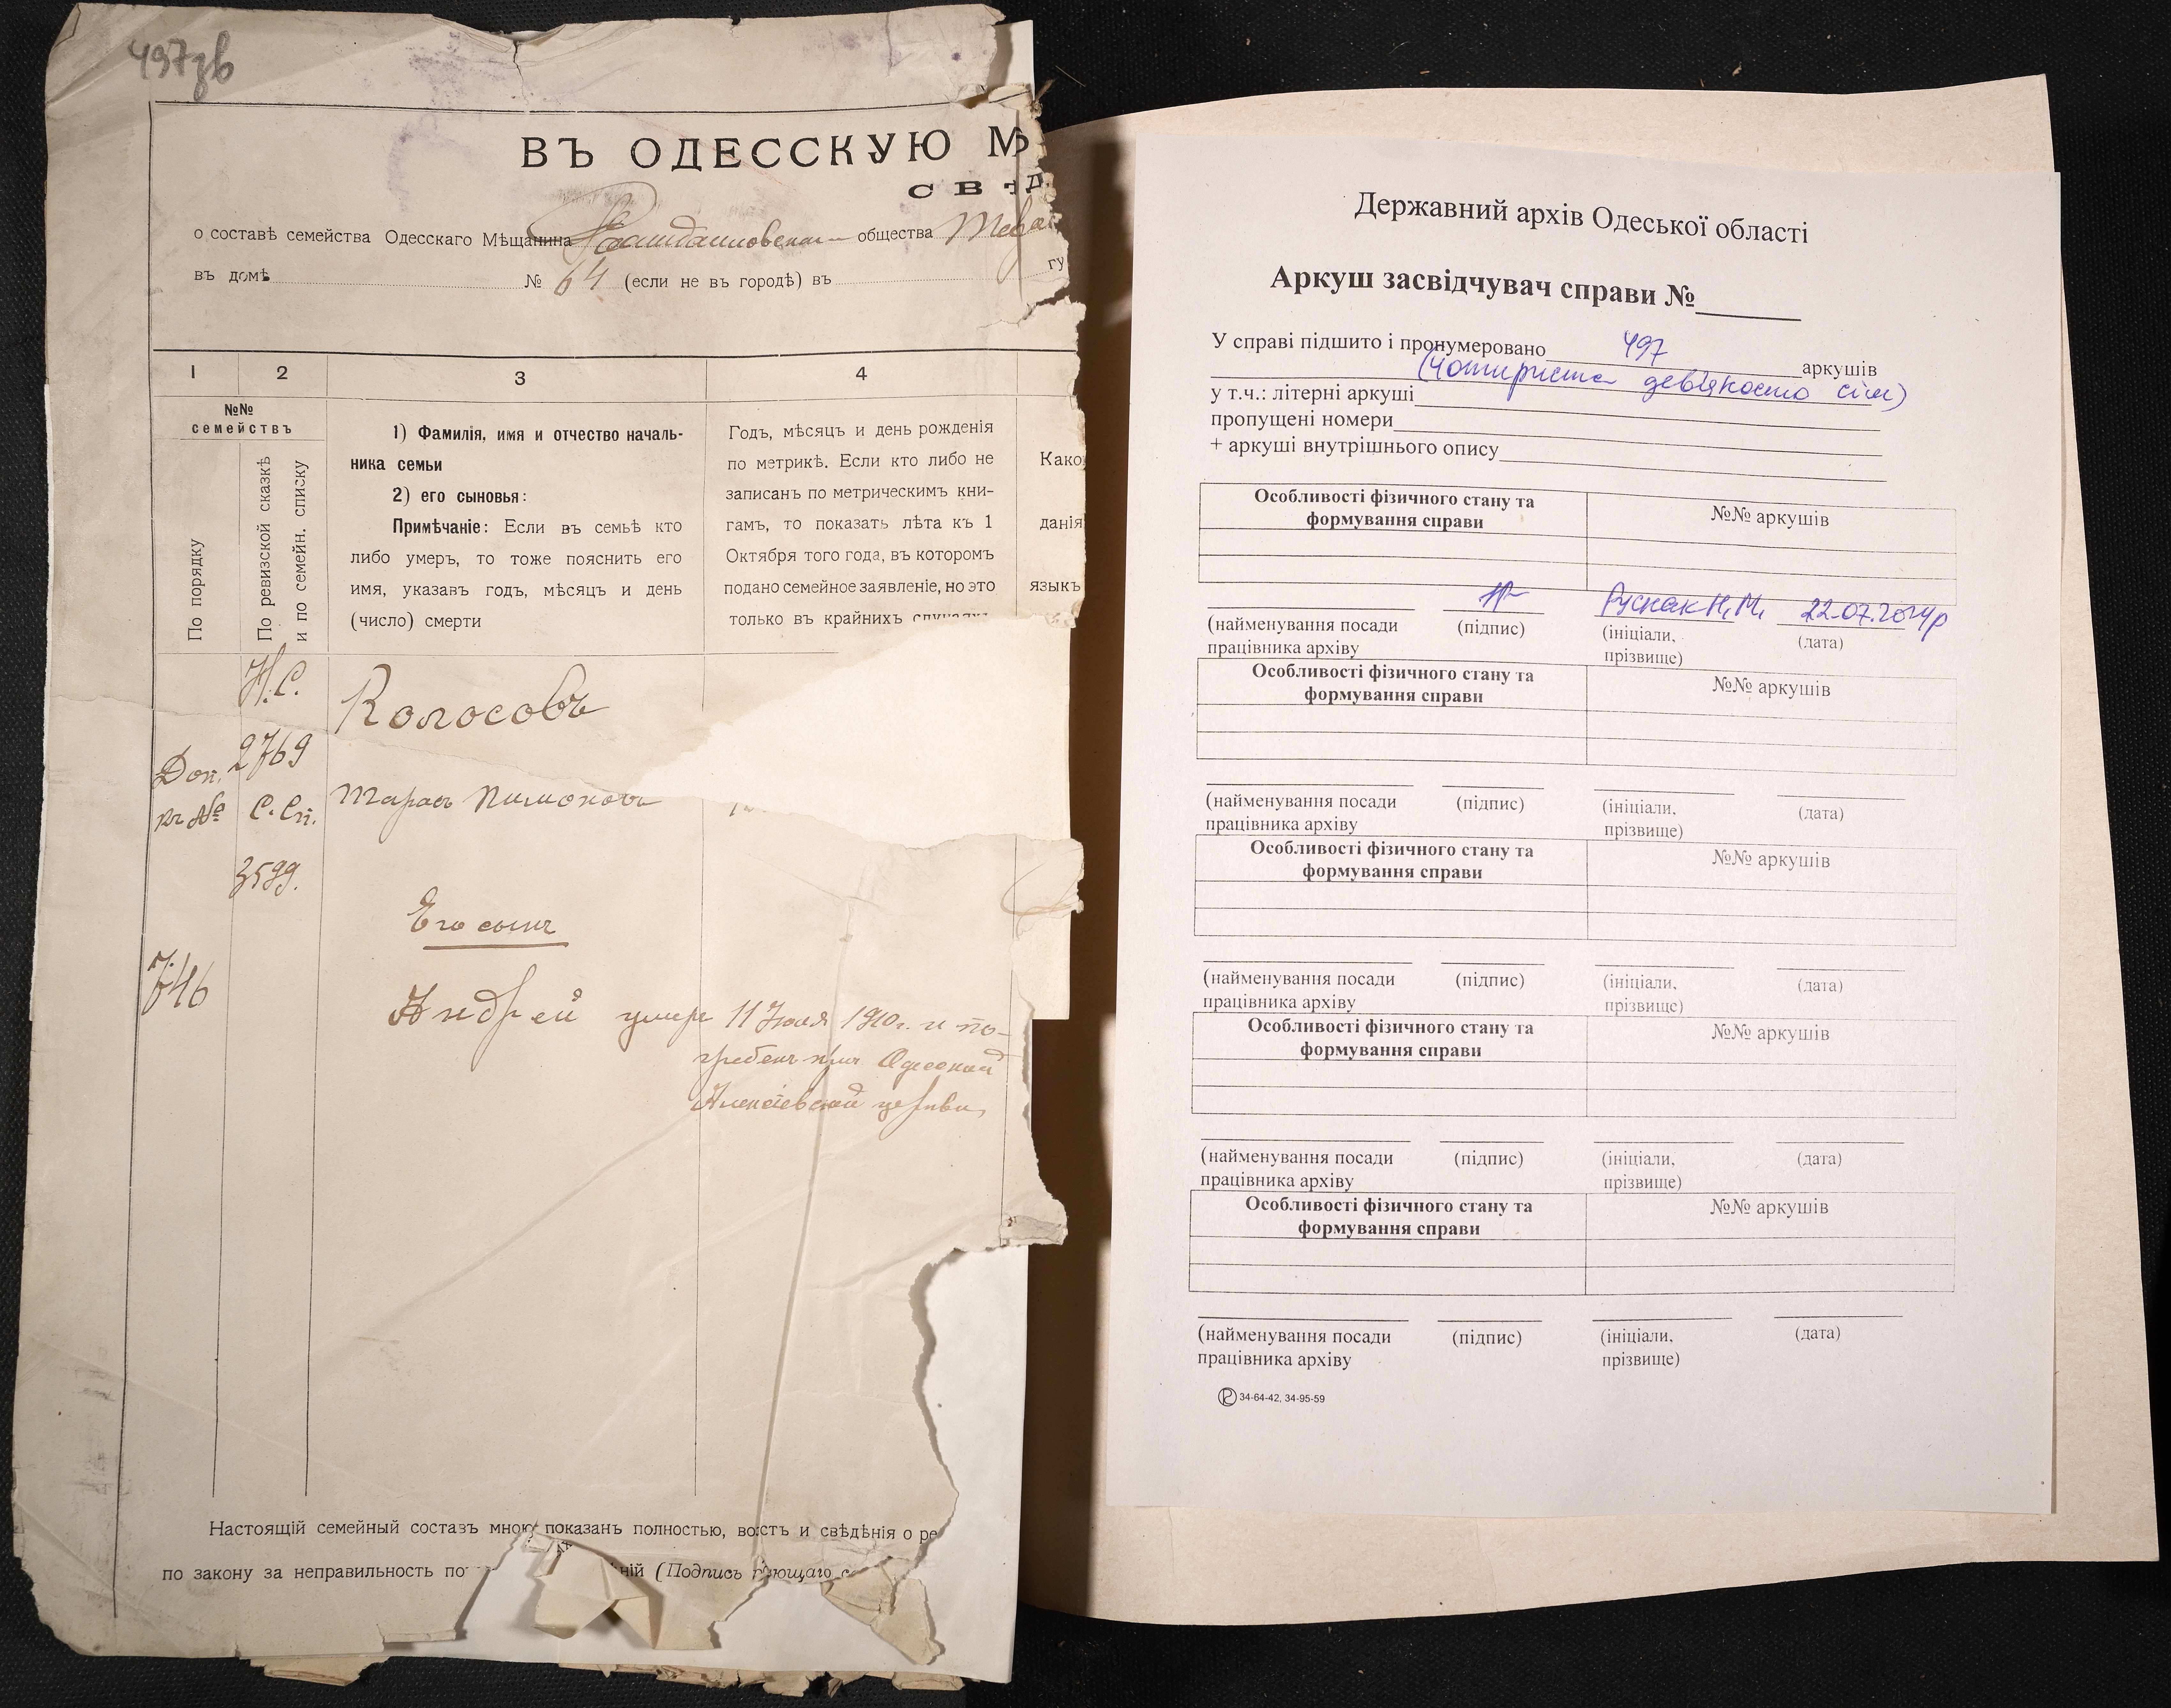 497зв
ВЪ ОДЕССКУЮ М
СВѢД
о составѣ семейства Одесскаго Мѣщанина общества
въ домѣ № 64 (если не въ городѣ) въ гу
1 2 3 4
№№
семействъ
По порядку
По ревизской сказкѣ
и по семейн. списку
1) Фамилія, имя и отчество началь-
ника семьи
2) его сыновья:
Примѣчаніе: Если въ семьѣ кто
либо умеръ, то тоже пояснить его
имя, указавъ годъ, мѣсяцъ и день
(число) смерти
Годъ, мѣсяцъ и день рожденія
по метрикѣ. Если кто либо не
записанъ по метрическимъ кни-
гамъ, то показать лѣта къ 1
Октября того года, въ которомъ
подано семейное заявленіе, но это
только въ крайнихъ случаяхъ
Како
данія
языкъ
Н.С.
2769
С.Сп.
3599.
Доп.
къ №
746
Колосовъ
Тарасъ Пимоновъ
Его сынъ
Андрей умеръ 11 Іюля 1910г. и по-
гребенъ при Одесской
Алексіевской церкви,
Настоящій семейный составъ мною показанъ полностью, и свѣдѣнія о
по закону за неправильность ній (Подпись
Державний архів Одеської області
Аркуш засвідчувач справи №
У справі підшито і пронумеровано 497 аркушів
(чотириста дев'яносто сім)
у т.ч.: літерні аркуші
пропущені номери
+ аркуші внутрішнього опису
Особливості фізичного стану та
формування справи
№№ аркушів
Руснак Н.М. 22.07.2024р
(найменування посади
працівника архіву
(підпис)
(ініціали,
прізвище)
(дата)
Особливості фізичного стану та
формування справи
№№ аркушів
(найменування посади
працівника архіву
(підпис)
(ініціали,
прізвище)
(дата)
Особливості фізичного стану та
формування справи
№№ аркушів
(найменування посади
працівника архіву
(підпис)
(ініціали,
прізвище)
(дата)
Особливості фізичного стану та
формування справи
№№ аркушів
(найменування посади
працівника архіву
(підпис)
(ініціали,
прізвище)
(дата)
Особливості фізичного стану та
формування справи
№№ аркушів
(найменування посади
працівника архіву
(підпис)
(ініціали,
прізвище)
(дата)
34-64-42, 34-95-59